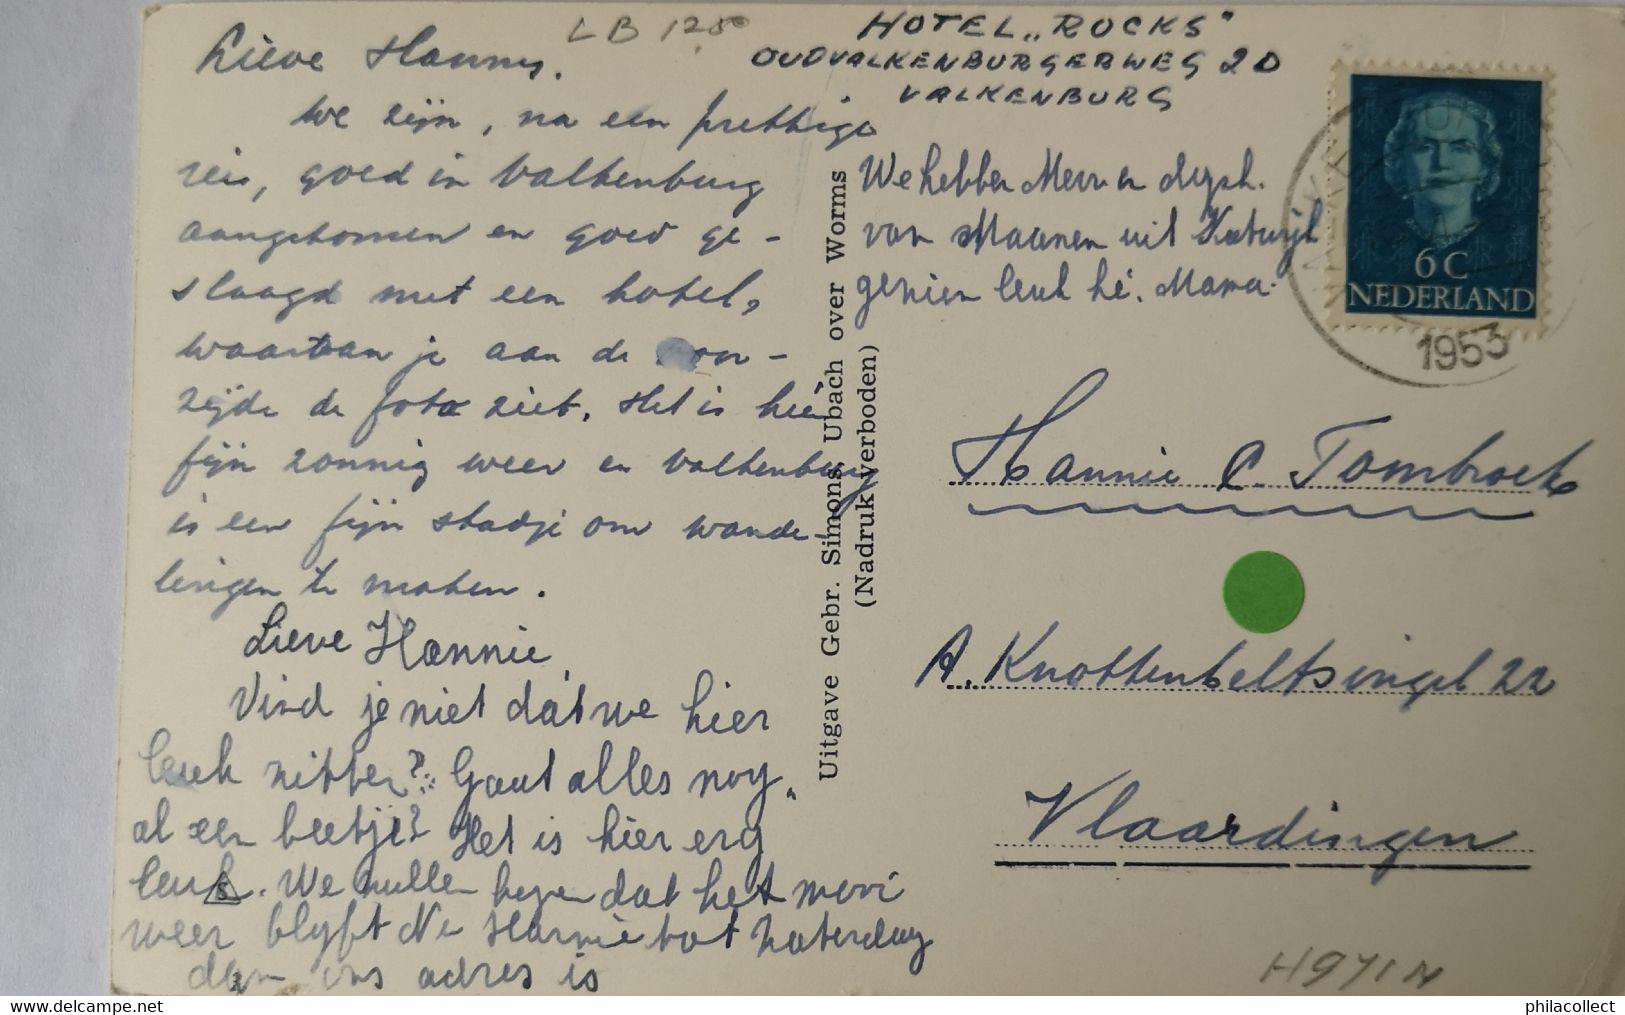 LB 1280
HOTEL „ROCKS"
OUDVALKENBURGERWEG 20
VALKENBURG
Lieve Hanny.
We zijn, na een prettige
reis, goed in Valkenburg
aangekomen en goed ge-
slaagd met een hotel,
waarvan je aan de voor-
zijde de foto ziet. Het is hier
fijn zonnig weer en Valkenburg
is een fijn stadje om wande-
lingen te maken.
Lieve Hannie,
Vind je niet dat we hier
leuk zitten? Gaat alles nog
al een beetje? Het is hier erg
leuk. We zullen hopen dat het mooi
weer blijft. Nu Hannie tot Zaterdag
dag ons adres is
We hebben Mevr en
van Maanen uit Katwijk
gezien leuk hé. Mama.
Uitgave Gebr. Simons, Ubach over Worms
(Nadruk verboden)
6 C
NEDERLAND
1953
Hannie C. Tombrock
A. Knottenbeltsingel 22
Vlaardingen
S
H971N
philacollect